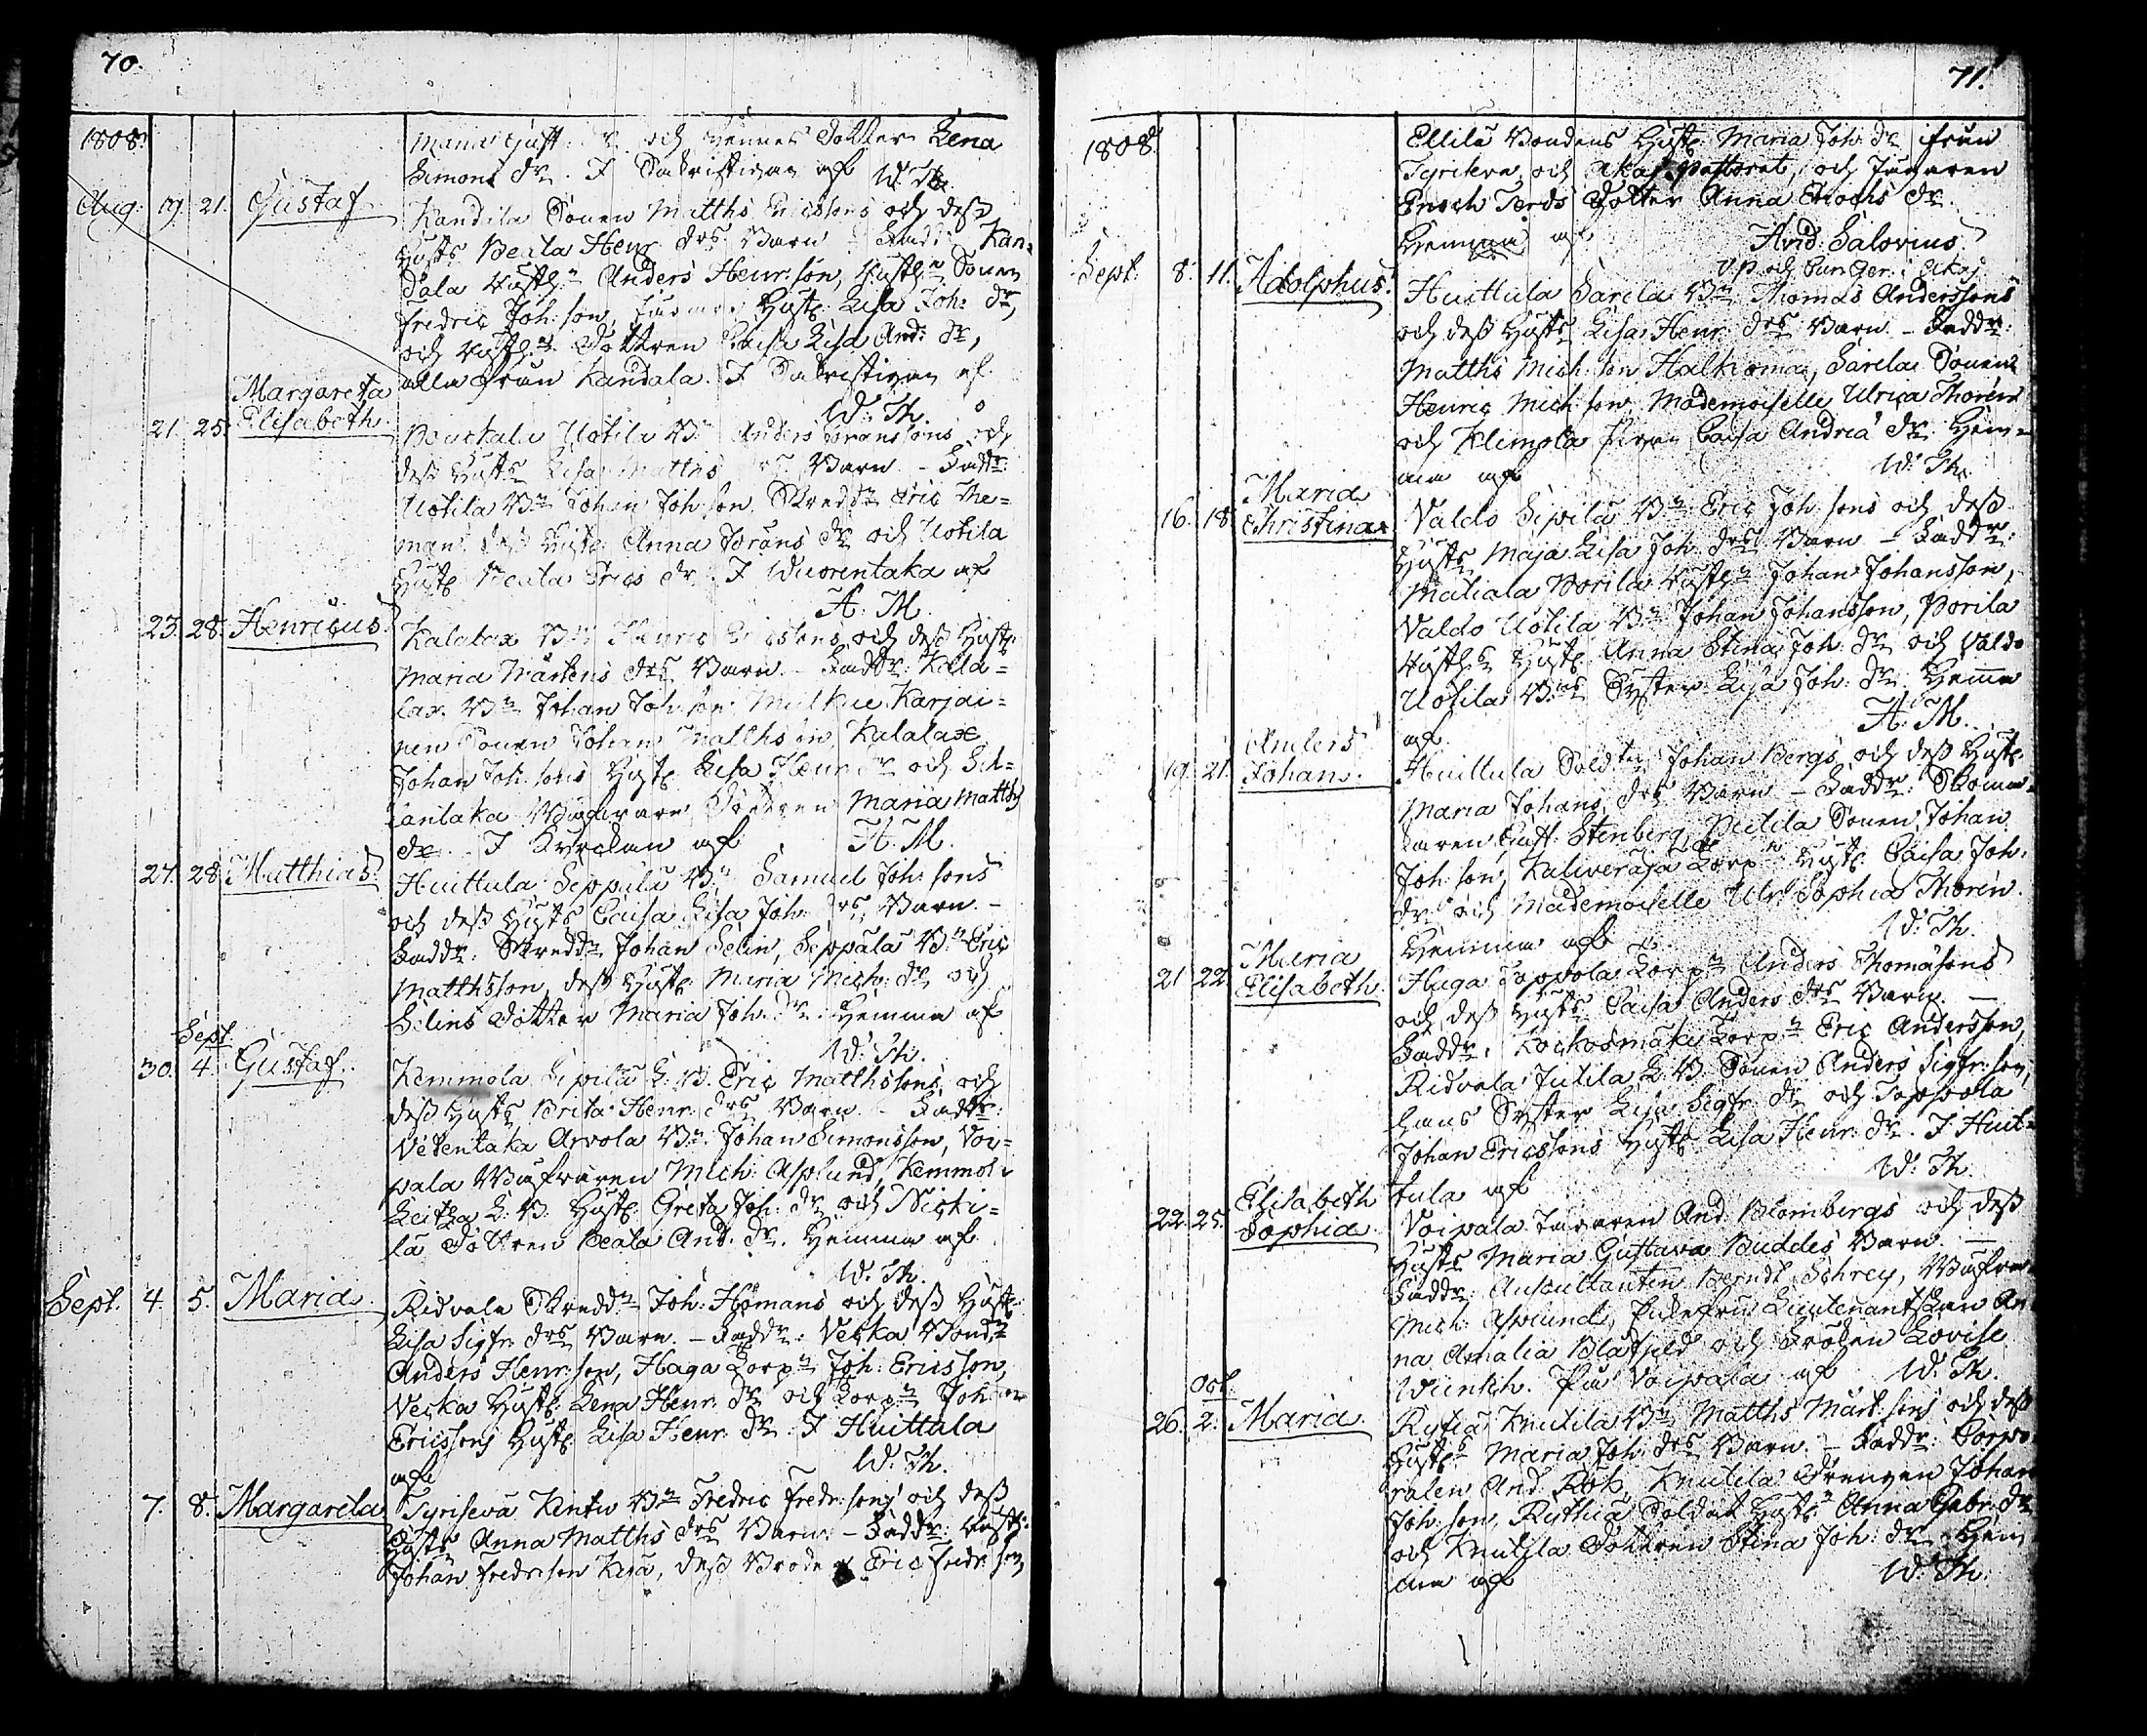 70.
1808.
Maria Gust. dr och hennes Dotter Lena
Simons dr. I Sakristigan af W. Th.
Aug. 19. 21. Gustaf.
Kandila Sonen Matths Ericssons och dess
Hustrs Beata Henr. drs Barn - Faddr. Kan=
dala Husth:n Anders Henr: son, Husth:n Sonen
Fredric Joh: son, Hust. Lisa Joh: dr,
och Husth:ns Dottren Caisa Lisa And: dr,
alla från Kandala. I Sakristigan af
W. Th.
21. 25. Margareta Elisabeth.
Pouckala Uotila B:n Anders Göranssons och
dess Hustrs Lisa Matths drs Barn. - Faddr:
Uotila B:n Johan Joh: son, Skreddn Eric The=
man, dess Hustr Anna Görans dr och Uotila
Hustr Beata Erics dr. I Wuorentaka af
A. M.
23. 28. Henricus.
Kalalax B:n Henric Ericssons och dess Hustr
Maria Mårtens drs Barn. - Faddr. Kala=
lax B:n Johan Joh: son, Karjai=
nen Sonen Johan Matths son, Kalalax
Johan Joh: sons Hustr Lisa Henr. dr och
Dottren Maria Matths
dr. I Kyrckan af A. M.
27. 28. Matthias.
Huittula Seppälä B:n Samuel Joh: sons
och dess Hustrs Caisa Lisa Joh: drs Barn. -
Faddr: Skreddn Johan Selin, Seppälä B:n Eric
Matthsson, dess Hustr Maria Mich: dr och
Selins Dotter Maria Joh. dr. Hemma af
W. Th.
30. Sept. 4. Gustaf.
Kemmola Sipilä L. B. Eric Matthssons och
dess Hustrs Brita Henr. drs Barn. - Faddr:
Vetentaka Arvola B:n Johan Simonsson, Voi=
pala Mich: Asplund, Kemmola
L. B. Hustr Greta Joh: dr och Nicki=
lä Dottren Beata And. dr. Hemma af
W. Th.
Sept. 4. 5. Maria.
Ridvala Skreddn Joh: Homans och dess Hustr
Lisa Sigfr. drs Barn. - Faddr: Vecka Bondn
Anders Henr: son, Haga Torp:n Joh: Ericsson,
Vecka Hustr Lena Henr. dr och Torp:n Johan
Ericssons Hustr Lisa Henr. dr. I Huittula
af W. Th.
7. 8. Margareta
Tyrisevä Kentu B:n Fredric Fredr: sons och dess
Hustrs Anna Matths drs Barn. - Faddr:
Johan Fredricson Kerä, dess Broder Eric Fredr: son
71.
1808.
Ellilä Bondens Hustr Maria Joh: dr ifrån
Tyrisevä och Akas Pastorat, och Jägaren
Enoch Dotter Anna Enochs dr.
Hemma af Arvid: Salovius.
V. P. och i Akas.
Sept. 8. 11. Adolphus.
Huittula Sarila B:n Thomas Anderssons
och dess Hustrs Lisa Henr. drs Barn. - Faddr:
Matths Mich: son Halkoma, Sarila Sonen
Henric Mich: son, Mademoiselle Ulrica Thorén
och Klemola Pigan Caisa Andrea dr. Hem=
ma af W. Th.
16. 18. Maria Christina.
Valdo Sipilä B:n Eric Joh: sons och dess
Hustrs Maja Lisa Joh. drs Barn - Faddr:
Matiala Porila Husth:n Johan Johansson,
Valdo Uotila B:n Johan Johansson, Porila
Husth:s Hustr Anna Stina Joh: dr och Valdo
Uotila B:ns Syster Lisa Joh: dr. Hemma
af A. M.
19. 21. Anders Johan.
Huittula Soldtn Johan Bergs och dess Hustr
Maria Johans drs Barn. - Faddr: Skomaa=
karen Gust. Stenberg, Pietila Sonen Johan
Joh: son, Torp:n Hustr Caisa Joh.
dr och Mademoiselle Ulr. Sophia Thorén.
Hemma af W. Th.
21. 22. Maria Elisabeth.
Haga Toppola Torp:n Anders Thomæsons
och dess Hustrs Caisa Anders drs Barn. -
Faddr: Torp:n Eric Andersson,
Ridvala Jutila L. B. Sonen Anders Sigfr: son,
hans Syster Lisa Sigfr. dr och Toppola
Johan Ericssons Hustr Lisa Henr: dr. I Huit=
tula af W. Th.
22. 25. Elisabeth Sophia.
Voipala Jägaren And: Blombergs och dess
Hustrs Maria Gustava Buddes Barn. -
Faddr: Auscultanten Berndt Schrey,
Mich: Asplund, Lieutenantskan An=
na Amalia Blåfield och Fröken Lovisa
Wuntsch. På Voipala af W. Th.
26. Oct. 2. Maria.
Rytiä Knutila B:n Matths Mårt: sons och dess
Hustrs Maria Joh. drs Barn. - Faddr: Corpo=
ralen And. Rok, Knutila Drengen Johan
Joh: son, Ruthiä Soldat Hustr Anna Gabr. dr
och Knutila Dottren Stina Joh: dr. Hem
ma af W. Th.